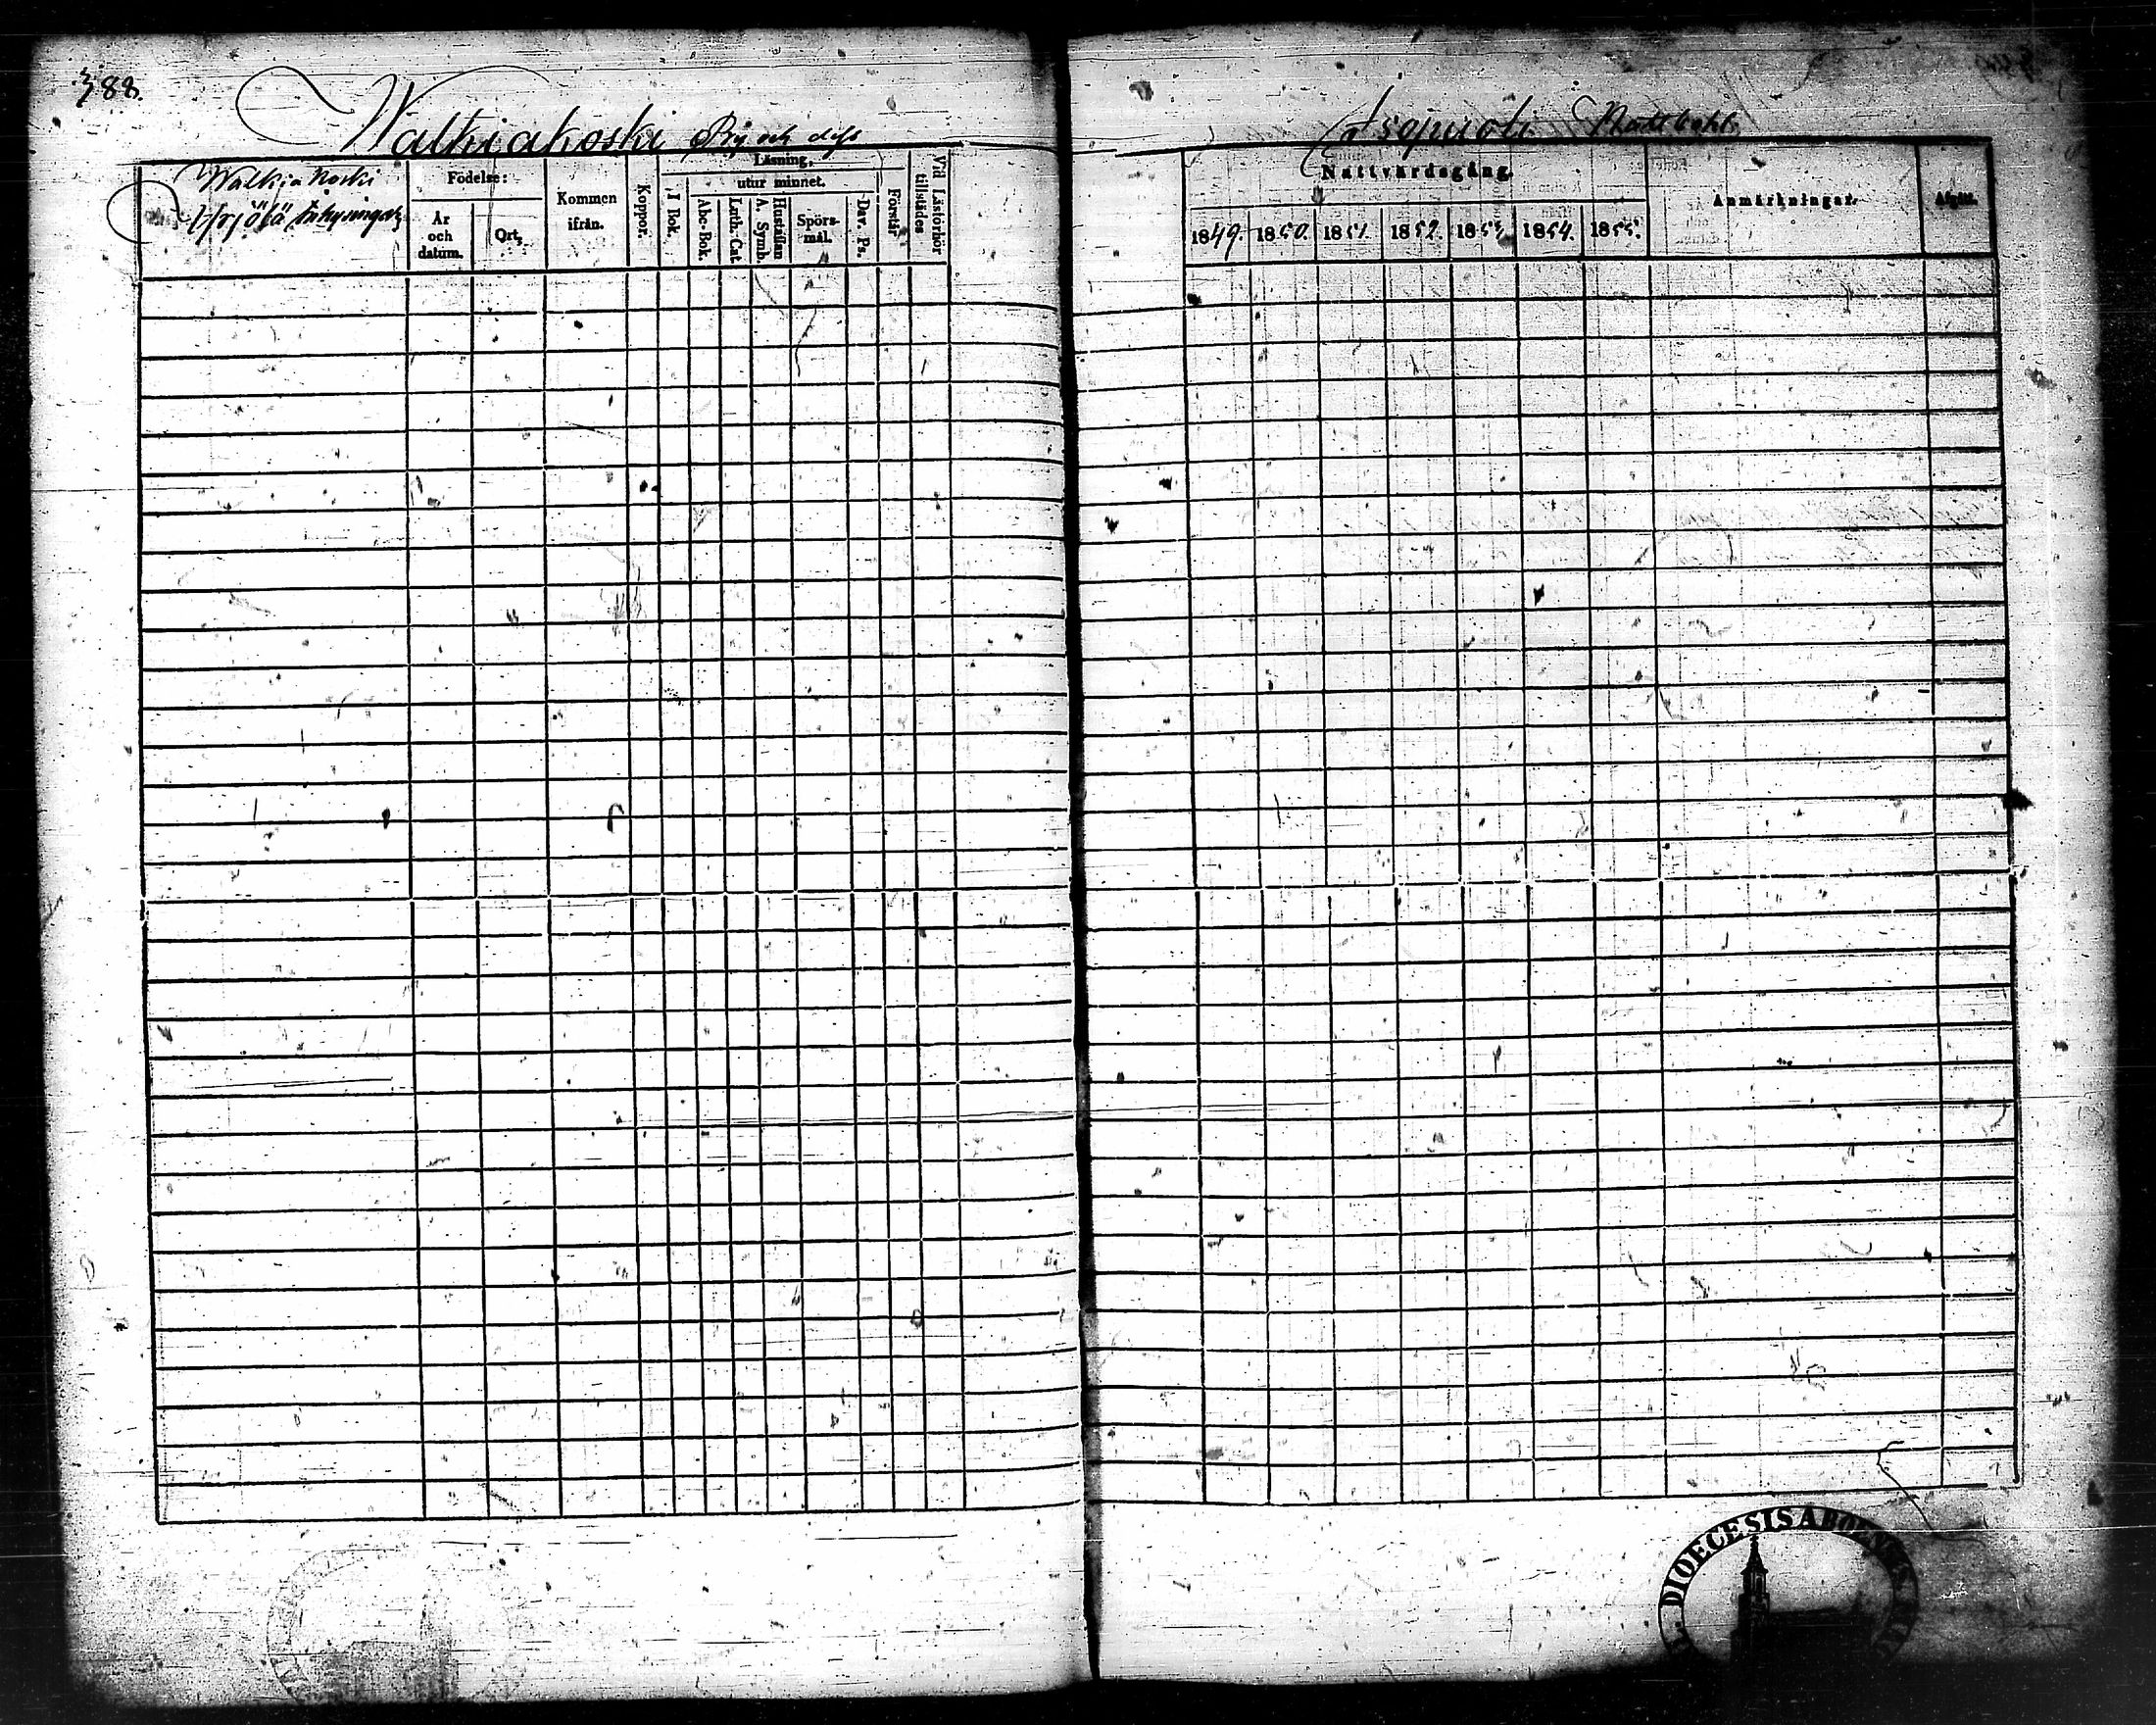 388.
Walkiakoski By och
Walkiakoski
Yrjölä
Födelse:
År
och
datum.
Ort,
Kommen
ifrån.
Koppor.
Läsning,
utur minnet.
I Bok.
Abc-Bok.
Luth. Cat.
Hustaflan
A. Symb.
Spörs-
mål.
Dav. Ps.
Förstår
Vid Läsförhör
tillstädes
Nattvardsgång.
1849.
1850.
1851
1852.
1853
1854.
1855.
Anmärkningar.
Afgått.
DIOECESIS ABOENSIS